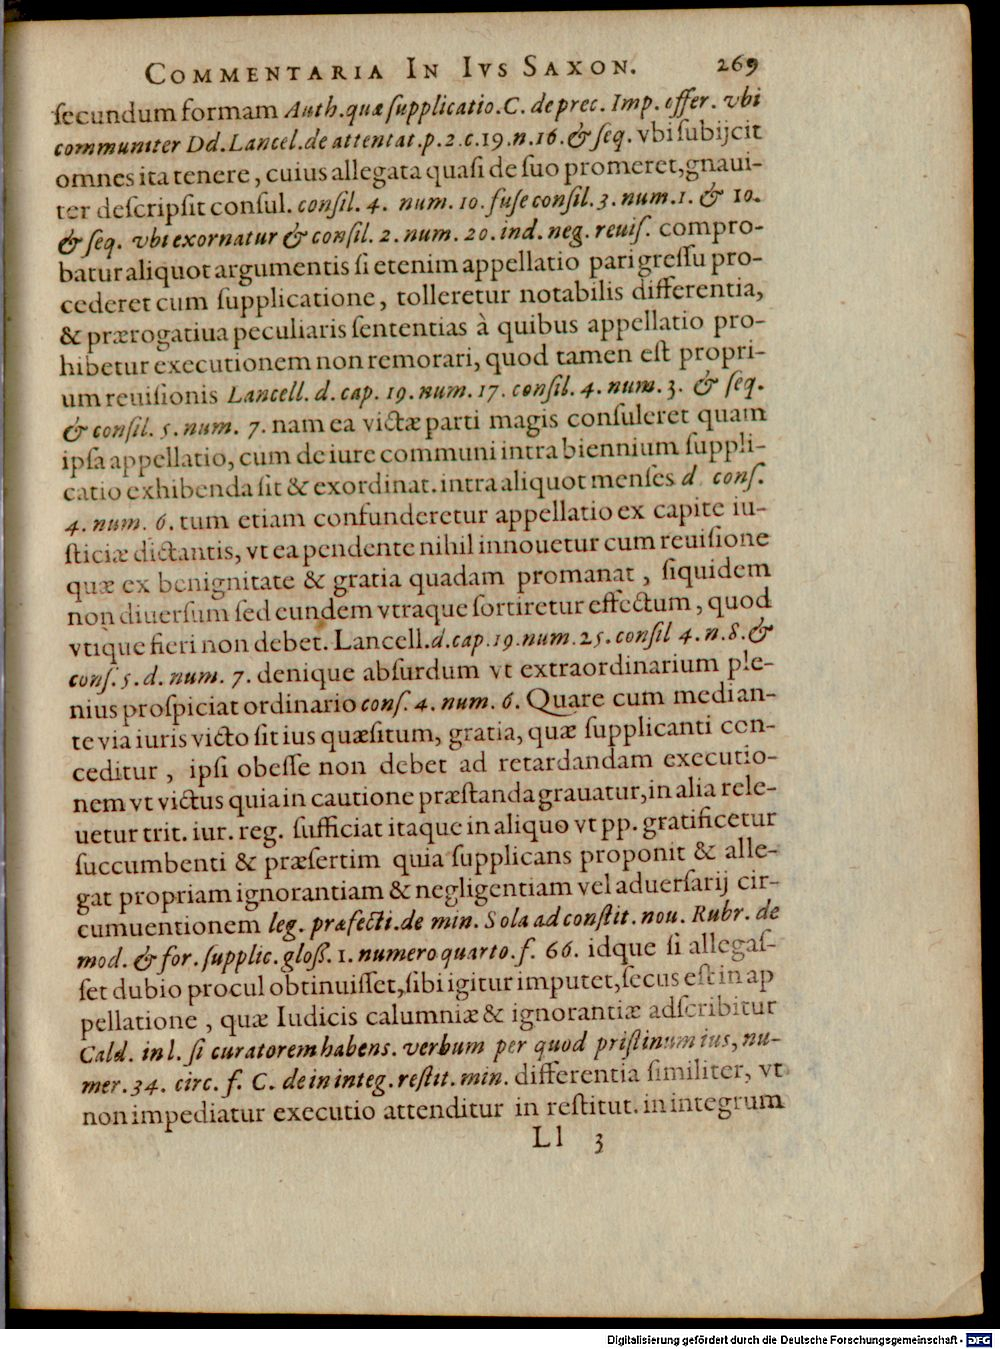 COMMENTARIA IN IVS SAXON. 269
ſecundum formam Auth. quæ ſupplicatio. C. de prec. Imp. offer. vbi
communiter Dd. Lancel. de attentat. p. 2. c. 19. n. 16. & ſeq. vbi ſubijcit
omnes ita tenere, cuius allegata quaſi de ſuo promeret, gnaui-
ter deſcripſit conſul. conſil. 4. num. 10. fuſe conſil. 3. num. 1. & 10.
& ſeq. vbi exornatur & conſil. 2. num. 20. ind. neg. reuiſ. compro-
batur aliquot argumentis ſi etenim appellatio pari greſſu pro-
cederet cum ſupplicatione, tolleretur notabilis differentia,
& prærogatiua peculiaris ſententias à quibus appellatio pro-
hibetur executionem non remorari, quod tamen eſt propri-
um reuiſionis Lancell. d. cap. 19. num. 17. conſil. 4. num. 3. & ſeq.
& conſil. 5. num. 7. nam ea victæ parti magis conſuleret quam
ipſa appellatio, cum de iure communi intra biennium ſuppli-
catio exhibenda ſit & ex ordinat. intra aliquot menſes d. conſ.
4. num. 6. tum etiam confunderetur appellatio ex capite iu-
ſticiæ dictantis, vt ea pendente nihil innouetur cum reuiſione
quæ ex benignitate & gratia quadam promanat, ſiquidem
non diuerſum ſed eundem vtraque ſortiretur effectum, quod
vtique fieri non debet. Lancell. d. cap. 19. num. 25. conſil 4. n. 8. &
conſ. 5. d. num. 7. denique abſurdum vt extraordinarium ple-
nius proſpiciat ordinario conſ. 4. num. 6. Quare cum median-
te via iuris victo ſit ius quæſitum, gratia, quæ ſupplicanti con-
ceditur, ipſi obeſſe non debet ad retardandam executio-
nem vt victus quia in cautione præſtanda grauatur, in alia rele-
uetur trit. iur. reg. ſufficiat itaque in aliquo vt pp. gratificetur
ſuccumbenti & præſertim quia ſupplicans proponit & alle-
gat propriam ignorantiam & negligentiam vel aduerſarij cir-
cumuentionem leg. præfecti. de min. Sola ad conſtit. nou. Rubr. de
mod. & for. ſupplic. gloſſ. 1. numero quarto. f. 66. idque ſi allegaſ-
ſet dubio procul obtinuiſſet, ſibi igitur imputet, ſecus eſt in ap
pellatione, quæ Iudicis calumniæ & ignorantiæ adſcribitur
Cald. in l. ſi curatorem habens. verbum per quod priſtinum ius, nu-
mer. 34. circ. f. C. de in integ. reſtit. min. differentia ſimiliter, vt
non impediatur executio attenditur in reſtitut. in integrum
Ll 3
Digitalisierung gefördert durch die Deutsche Forschungsgemeinschaft - DFG